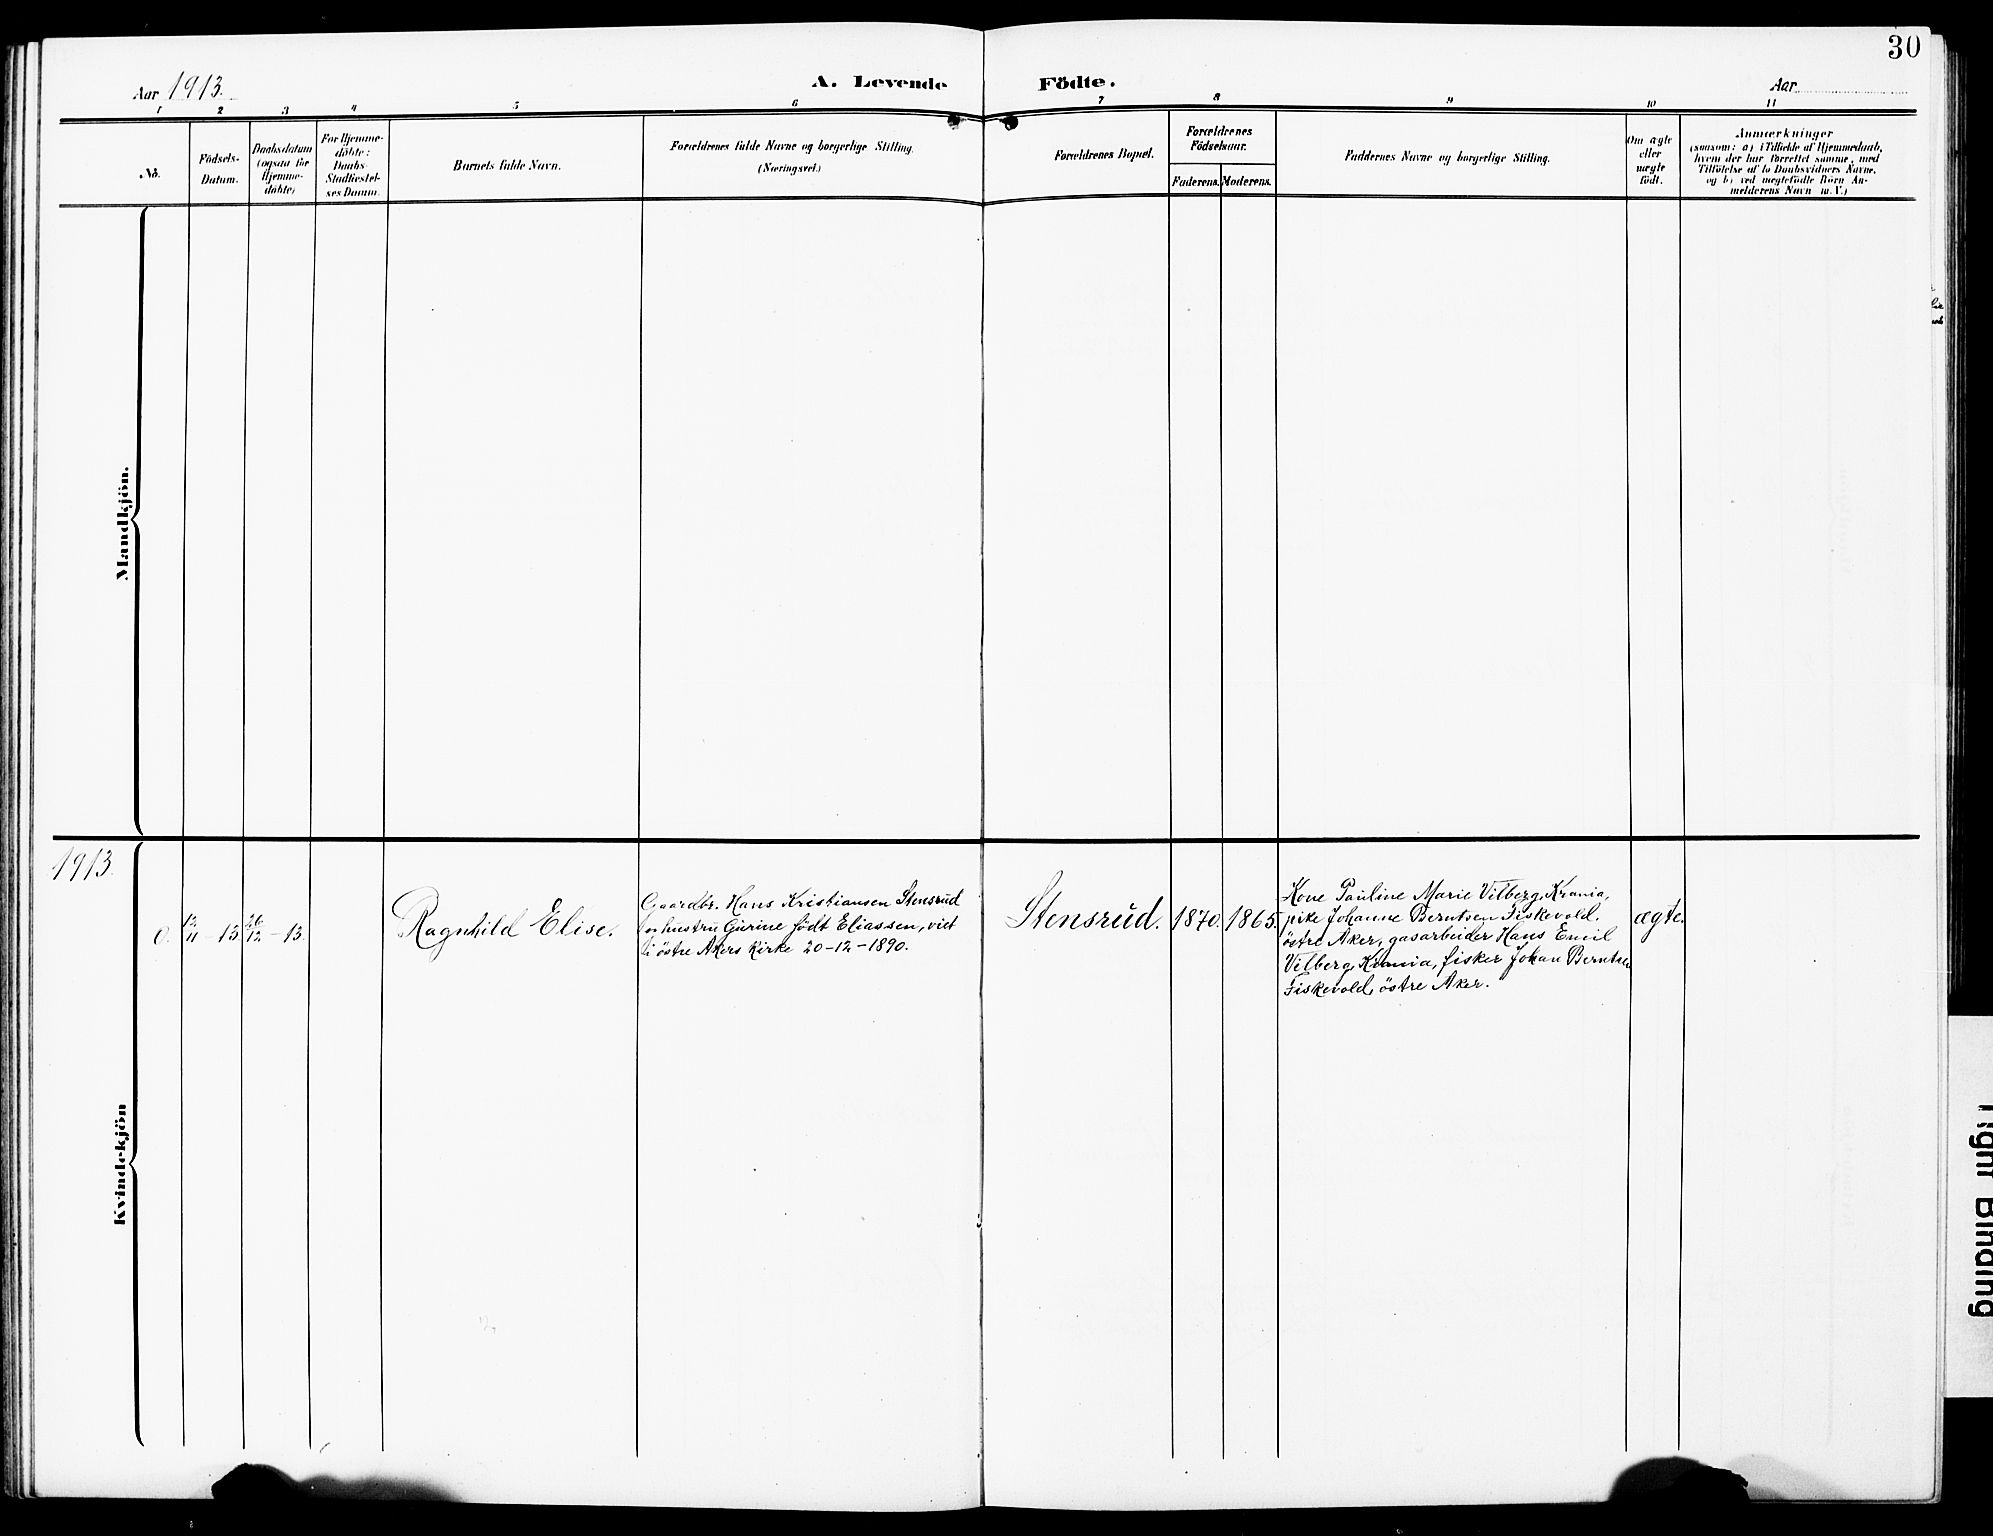 30
Aar 1913.
A. Levende Födte.
Aar
1 2 3 4 5 6 7 8 9 10 11
No.
Födsels-
Datum.
Daabsdatum
(ogsaa for
Hjemme-
döbte)
For Hjemme-
döbte:
Daabs-
Stadfæstel-
ses Datum.
Barnets fulde Navn.
Forældrenes fulde Navne og borgerlige Stilling.
(Næringsvei.)
Forældrenes Bopæl.
Forældrenes
Födselsaar.
Faderens. Moderens.
Faddernes Navne og borgerlige Stilling.
Om ægte
eller
uægte
födt.
Anmærkninger
(saasom: a) i Tilfælde af Hjemmedaab,
hvem der har forrettet samme, med
Tilföielse af to Daabsvidners Navne,
og b) ved uægtefödte Börn An-
melderens Navn m. V.)
Mandkjön.
1913.
Kvindekjön
0.
12/11 - 13.
26/12 - 13.
Ragnhild Elise.
Gaardbr. Hans Kristiansen Stensrud
og hustru Gurine födt Eliassen, viet
i östre Akers kirke 20-12-1890.
Stensrud.
1870.
1865.
Kone Pauline Marie Vilberg, Krania,
pike Johanne Berntsen Fiskevold.
östre Aker, gasarbeider Hans Emil
Vilberg, Krania, fisker Johan Berntsen
Fiskevold, östre Aker.
ægte.
Tight Binding